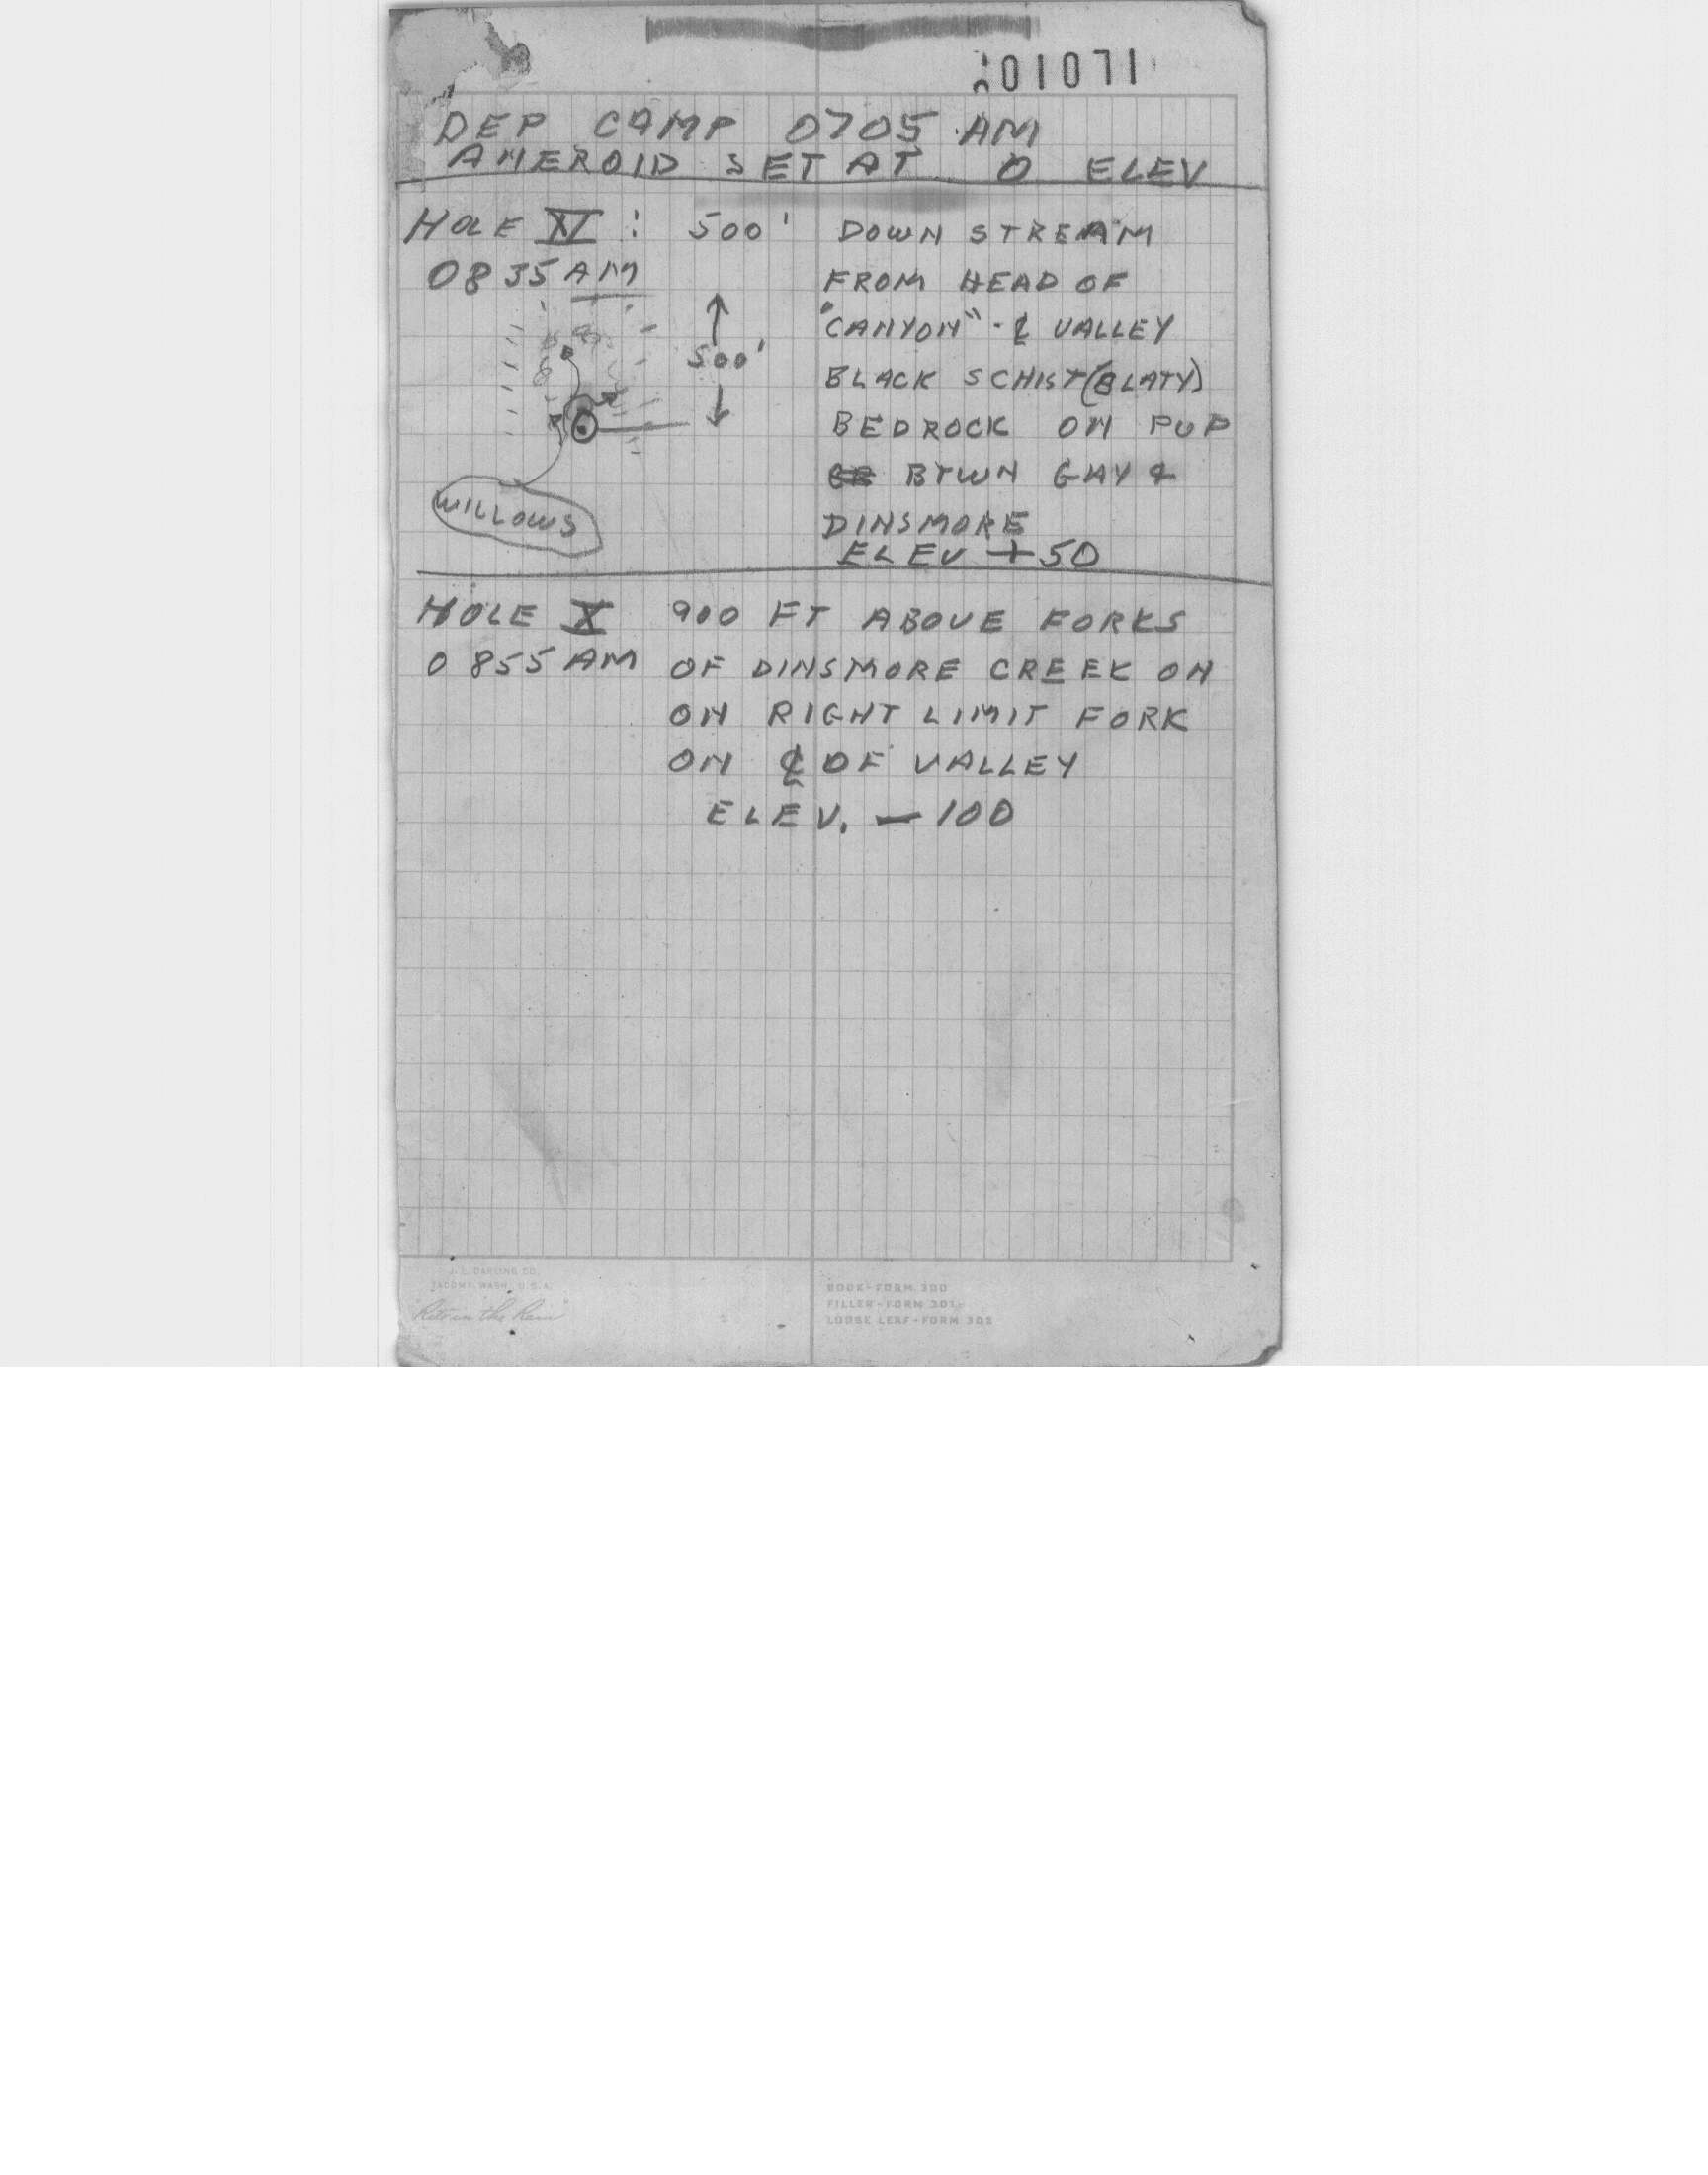 01071
DEP CAMP 0705 AM
ANEROID SET AT 0 ELEV
HOLE XI : 500' DOWN STREAM
0835 AM FROM HEAD OF
"CANYON" - ℄ VALLEY
500'
BLACK SCHIST (SLATY)
BEDROCK ON PUP
BTWN GAY &
WILLOWS
DINSMORE
ELEV +50
HOLE X 900 FT ABOVE FORKS
0855 AM OF DINSMORE CREEK ON
ON RIGHT LIMIT FORK
ON ℄ OF VALLEY
ELEV. -100
J. L. DARLING CO.
TACOMA, WASH., U.S.A.
"Rite in the Rain"
BOOK-FORM 300
FILLER-FORM 301
LOOSE LEAF-FORM 303